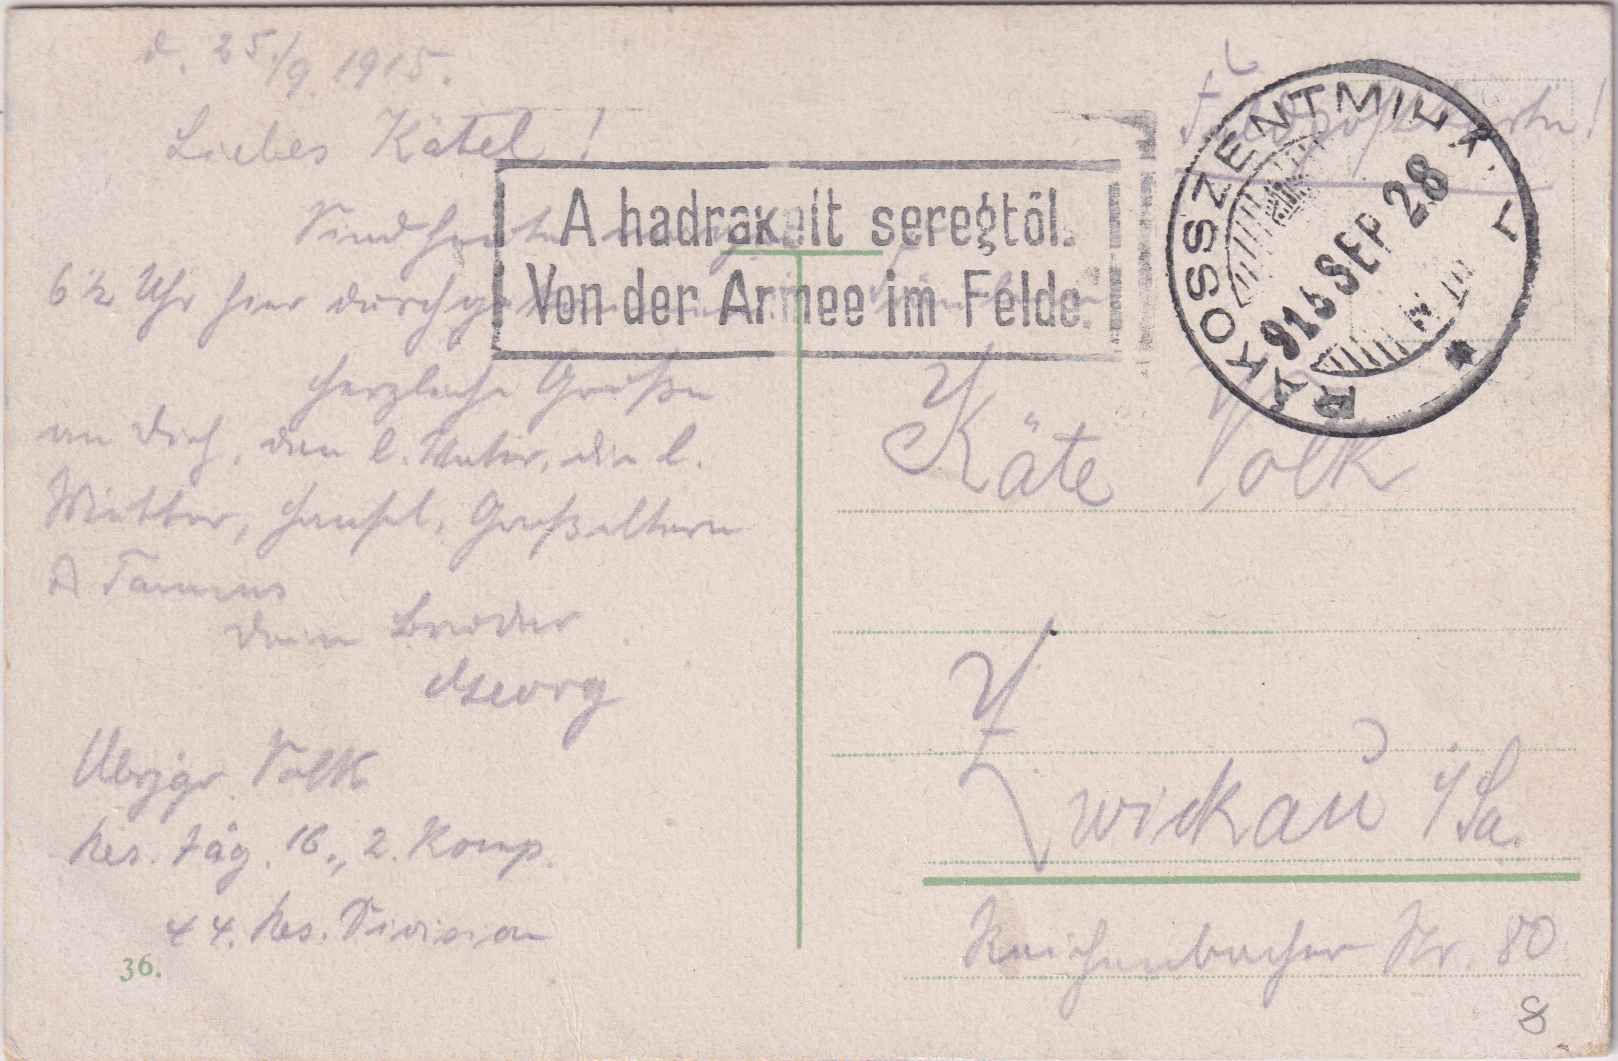 d. 25./9. 1915.
Liebes Kätel!
Sind heute
6½ Uhr hier durchge
herzliche Grüße
an Dich, den l. Vater, die l.
Mutter, Hansel, Großeltern
Dein Bruder
Georg
Volk
Res. Jäg. 16., 2. Komp.
44. Res. Division
36.
Feldpostkarte!
A hadrakelt seregtöl.
Von der Armee im Felde.
RÁKOSSZENTMIHÁLY
915 SEP 28
Käte Volk
Zwickau i/Sa.
Reichenbacher Str. 80
8